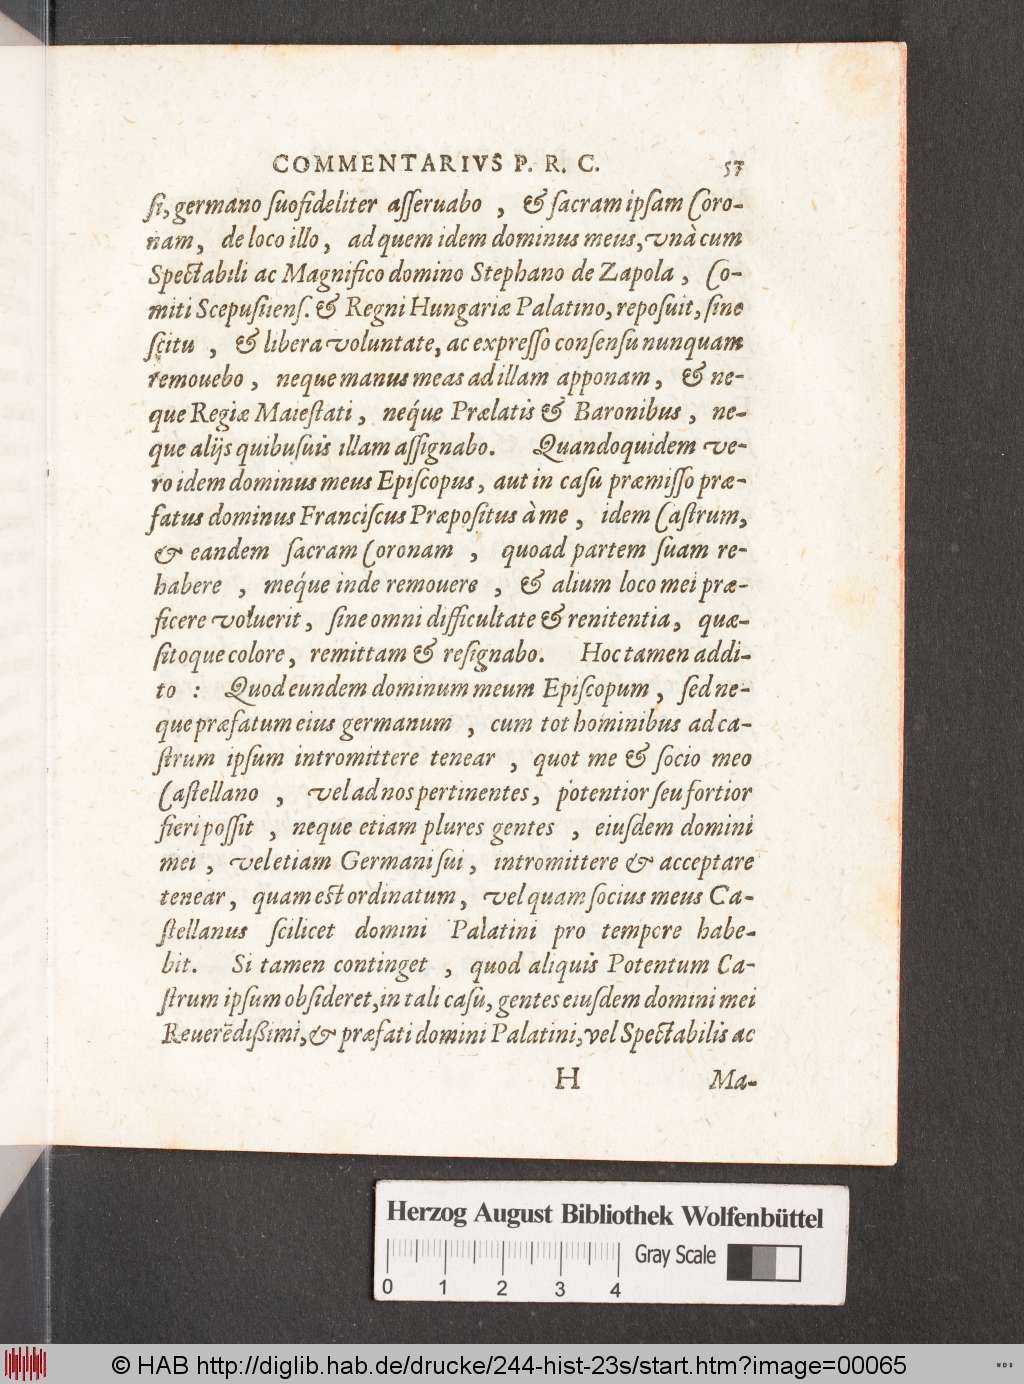 COMMENTARIVS P. R. C. 57
si, germano suo fideliter asseruabo , & sacram ipsam Coro-
nam, de loco illo, ad quem idem dominus meus, vnà cum
Spectabili ac Magnifico domino Stephano de Zapola, Co-
miti Scepusiiens. & Regni Hungariæ Palatino, reposuit, sine
scitu , & libera voluntate, ac expresso consensu nunquam
remouebo , neque manus meas ad illam apponam, & ne-
que Regiæ Maiestati , neq́ue Prælatis & Baronibus , ne-
que alijs quibusuis illam assignabo. Quandoquidem ve-
ro idem dominus meus Episcopus, aut in casu præmisso præ-
fatus dominus Franciscus Præpositus à me , idem Castrum,
& eandem sacram Coronam , quoad partem suam re-
habere , meq́ue inde remouere , & alium loco mei præ-
ficere voluerit, sine omni difficultate & renitentia, quæ-
sitoque colore, remittam & resignabo. Hoc tamen addi-
to : Quod eundem dominum meum Episcopum, sed ne-
que præfatum eius germanum , cum tot hominibus ad ca-
strum ipsum intromittere tenear , quot me & socio meo
Castellano , vel ad nos pertinentes, potentior seu fortior
fieri possit , neque etiam plures gentes , eiusdem domini
mei , vel etiam Germani sui, intromittere & acceptare
tenear, quam est ordinatum, vel quam socius meus Ca-
stellanus scilicet domini Palatini pro tempore habe-
bit. Si tamen continget , quod aliquis Potentum Ca-
strum ipsum obsideret, in tali casu, gentes eiusdem domini mei
Reuerēdißimi, & præfati domini Palatini, vel Spectabilis ac
H Ma-
Herzog August Bibliothek Wolfenbüttel
Gray Scale
0 1 2 3 4
© HAB http://diglib.hab.de/drucke/244-hist-23s/start.htm?image=00065